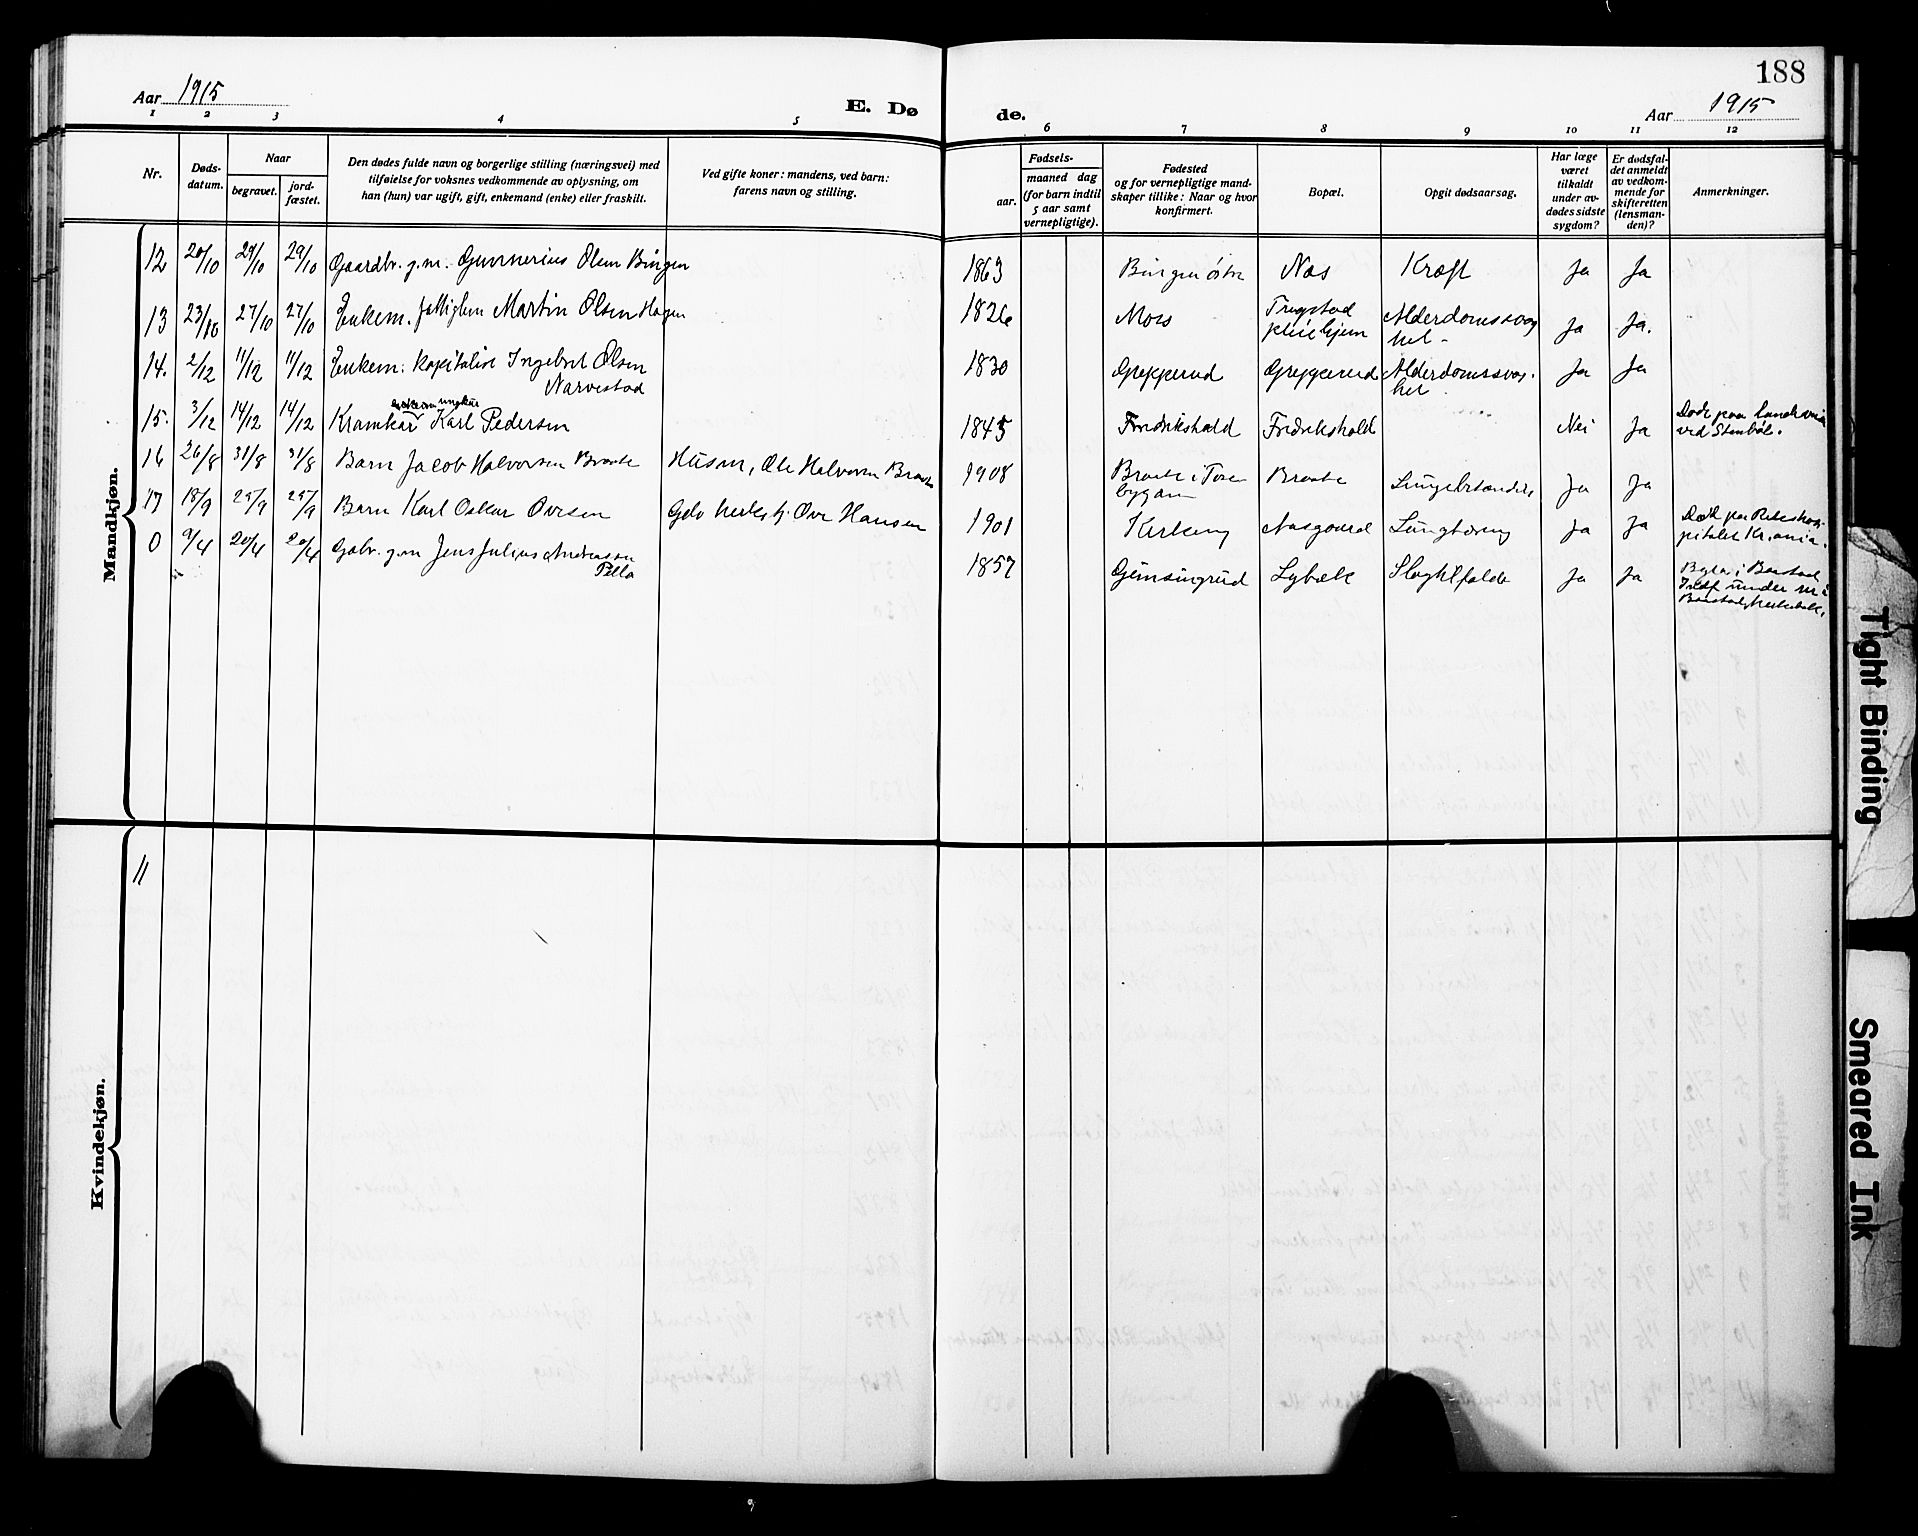 188
Aar 1915
E. Dø
de.
Aar 1915
1 2 3 4 5 6 7 8 9 10 11 12
Nr.
Døds-
datum.
Naar
begravet.
jord-
fæstet.
Den dødes fulde navn og borgerlige stilling (næringsvei) med
tilføielse for voksnes vedkommende av oplysning, om
han (hun) var ugift, gift, enkemand (enke) eller fraskilt.
Ved gifte koner: mandens, ved barn:
farens navn og stilling.
Fødsels-
aar.
maaned dag
(for barn indtil
5 aar samt
vernepligtige).
Fødested
og for vernepligtige mand-
skaper tillike: Naar og hvor
konfirmert.
Bopæl.
Opgit dødsaarsag.
Har læge
været
tilkaldt
under av-
dødes sidste
sygdom?
Er dødsfal-
det anmeldt
av vedkom-
mende for
skifteretten
(lensman-
den)?
Anmerkninger.
Mandkjøn.
12 20/10 29/10 29/10 Gaardbr. g.m. Gunnerius Olsen Bingen 1863 Bingen østre Næs Kræft Ja Ja
13 23/10 27/10 27/10 Enkem. Martin Olsen Hagen 1826 Moss Trygstad Alderdomssvag Ja Ja.
pleiehjem het -
14. 2/12 11/12 11/12 Enkem. Kapitalist Ingebret Olsen 1830 Greppperud Alderdomssvag- Ja Ja
Narvestad het
15. 3/12 14/12 14/12 Kramkar Karl Pedersen 1845 Fredrikshald Fredrikshald Nei Ja Døde paa
ved Stenbøl.
16 26/8 31/8 31/8 Barn Jacob Halvorsen Braate Husm. Ole Halvorsen Braate 1908 Braate i Braate Lungebetændelse Ja Ja
17 18/9 25/9 25/9 Barn Karl Oskar Ovesen Ove Hansen 1901 Kirkeng Aasgaard Lungtæring Ja Ja Døde paa Rikshos-
pitalet Kr.ania.
0 9/4 20/4 20/4 Gbr. g.m. Jens Julius Andreassen 1857 Gimsingrud Lybæk Slaghtilfælde Ja Ja
Pella
Kvindekjøn.
11
Tight Binding
Smeared Ink